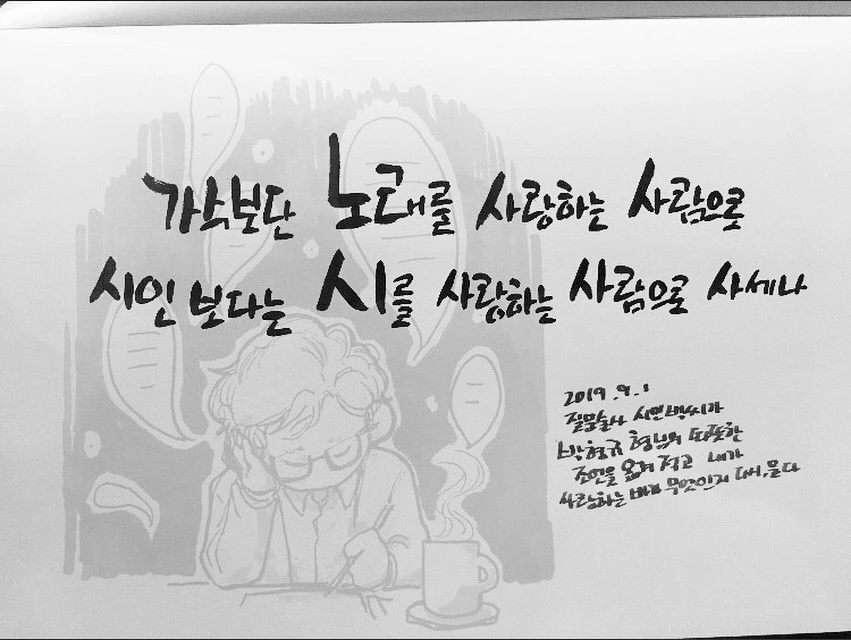 가수보단 노래를 사랑하는 사람으로
시인 보다는 시를 사랑하는 사람으로 사세나
2019.9.1
질문술사 시인박씨가
박현규 형님의 따뜻한
조언을 옮겨 적고 내가
사랑하는 바가 무엇인지 다시, 묻다